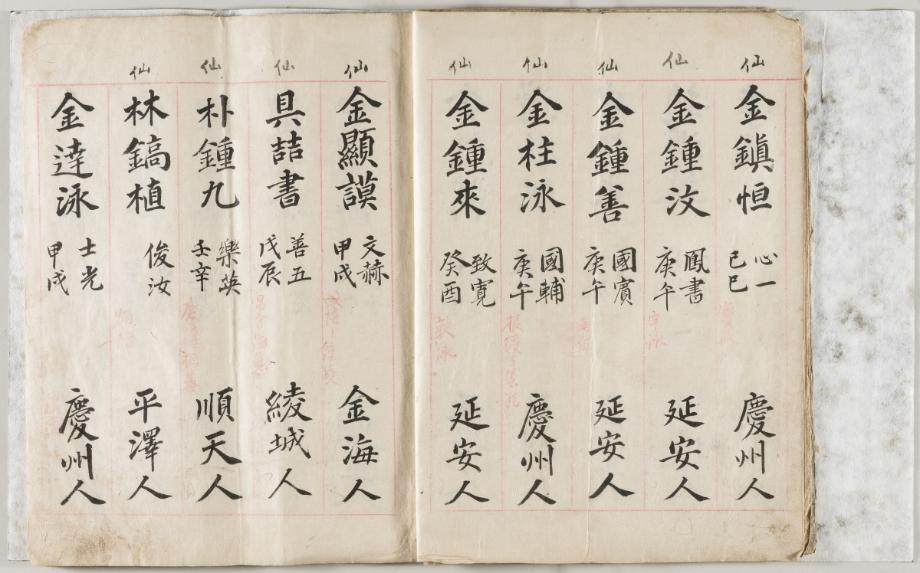 仙 金鎭恒 心一 己巳 慶州人
仙 金鍾汶 鳳書 庚午 延安人
仙 金鍾善 國賓 庚午 延安人
仙 金柱泳 國輔 庚午 慶州人
仙 金鍾來 致寬 癸酉 延安人
仙 金顯謨 文赫 甲戌 金海人
仙 具喆書 善五 戊辰 綾城人
仙 朴鍾九 樂英 壬辛 順天人
仙 林鎬植 俊汝 平澤人
金達泳 士光 甲戌 慶州人